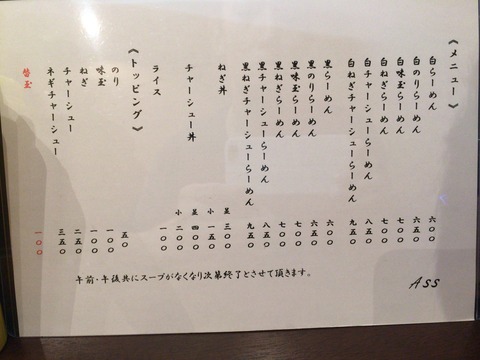 《メニュー》
白らーめん 六〇〇
白のりらーめん 六五〇
白味玉らーめん 七〇〇
白ねぎらーめん 七〇〇
白チャーシューらーめん 八五〇
白ねぎチャーシューらーめん 九五〇
黒らーめん 六〇〇
黒のりらーめん 六五〇
黒味玉らーめん 七〇〇
黒ねぎらーめん 七〇〇
黒チャーシューらーめん 八五〇
黒ねぎチャーシューらーめん 九五〇
ねぎ丼 並 三〇〇
小 一五〇
チャーシュー丼 並 四〇〇
小 二〇〇
ライス 一〇〇
《トッピング》
のり 五〇
味玉 一〇〇
ねぎ 一〇〇
チャーシュー 二五〇
ネギチャーシュー 三五〇
替玉 一〇〇
午前・午後共にスープがなくなり次第終了とさせて頂きます。
ASS